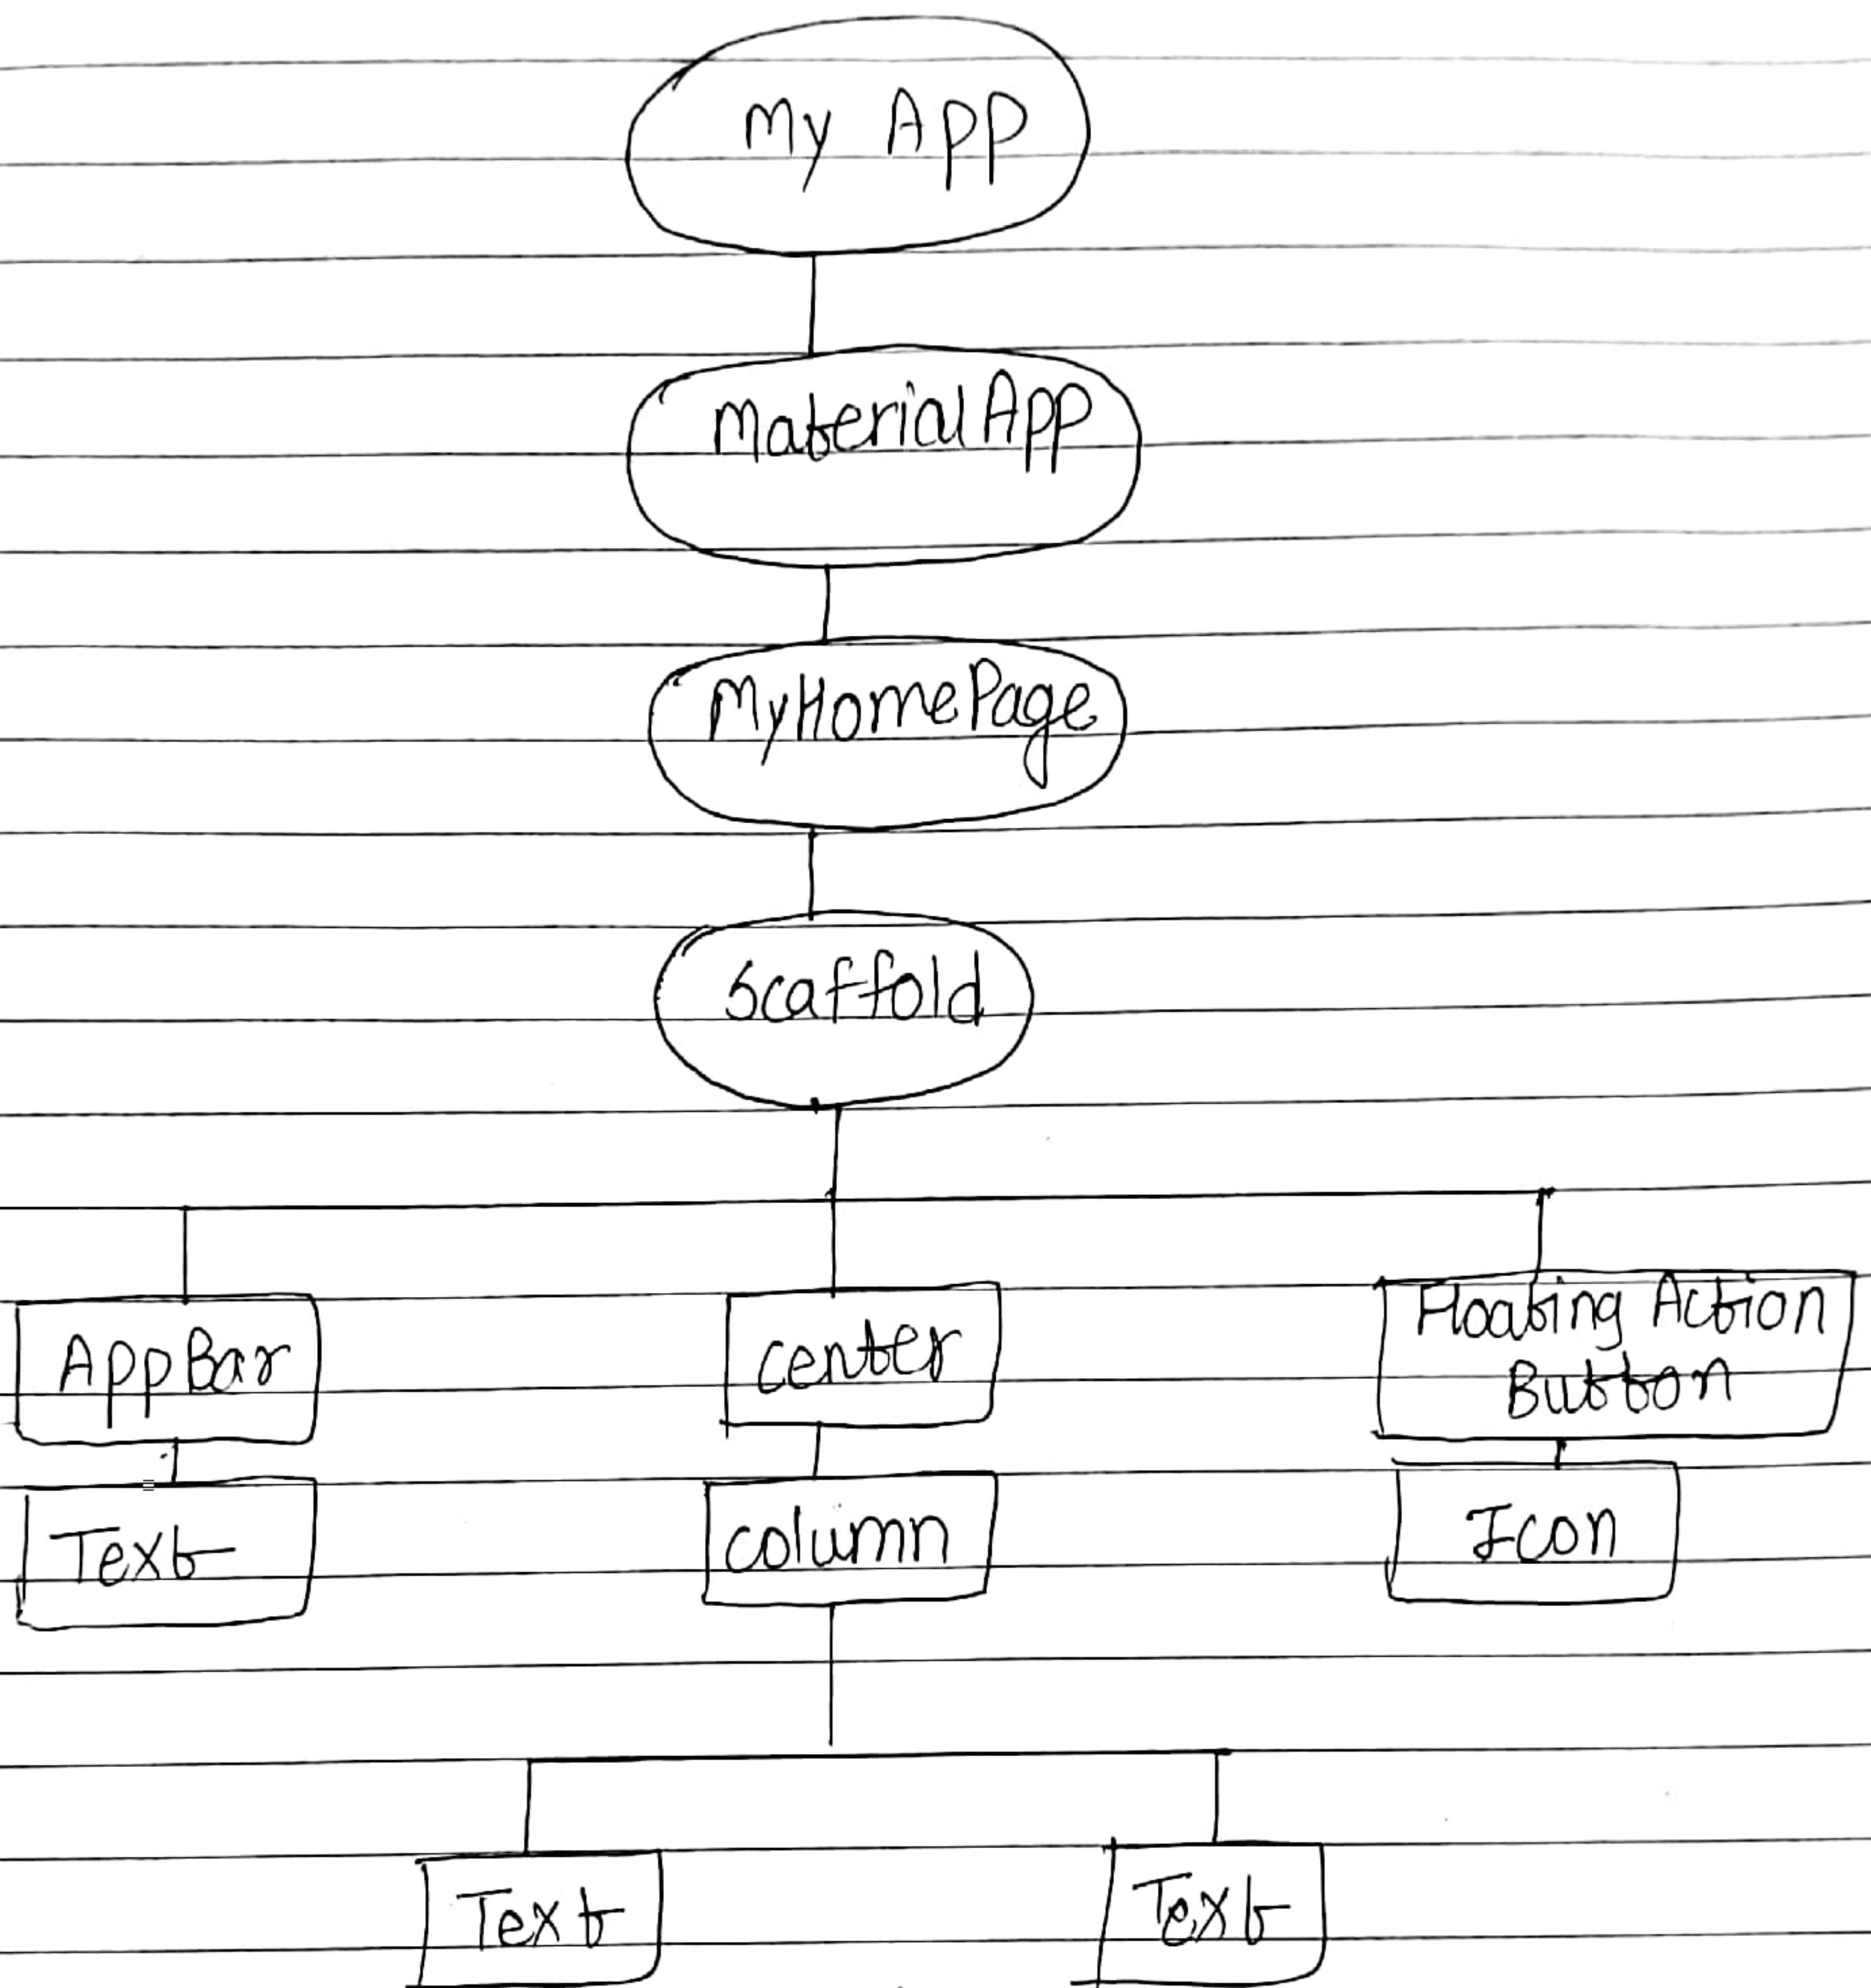 My App
MaterialApp
MyHomePage
Scaffold
AppBar
center
Floating Action
Button
Text
column
Icon
Text
Text